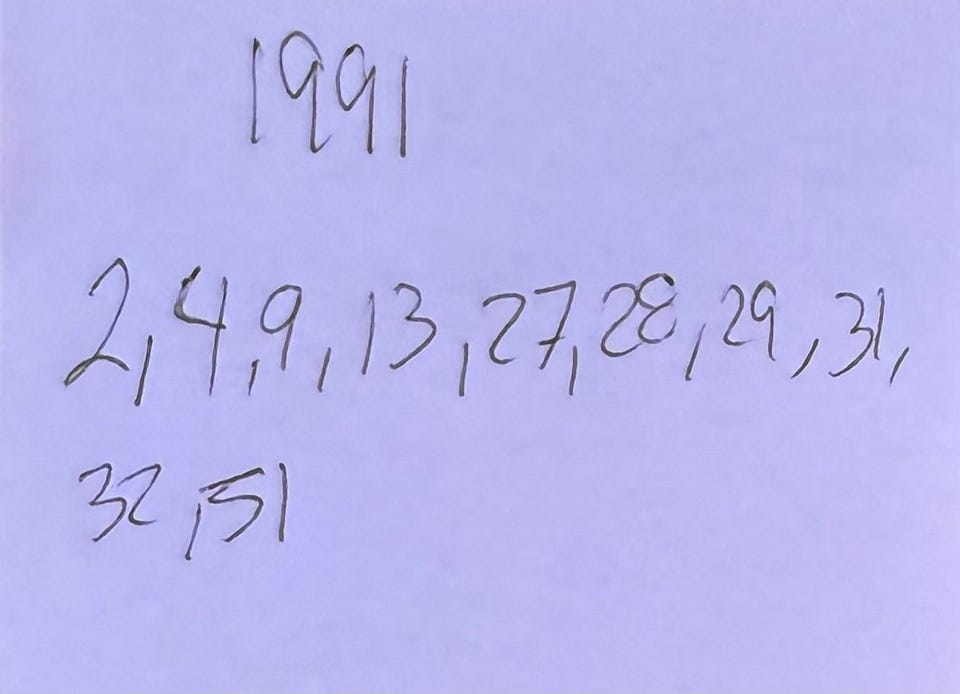 1991
2, 4, 9, 13, 27, 28, 29, 31,
32, 51